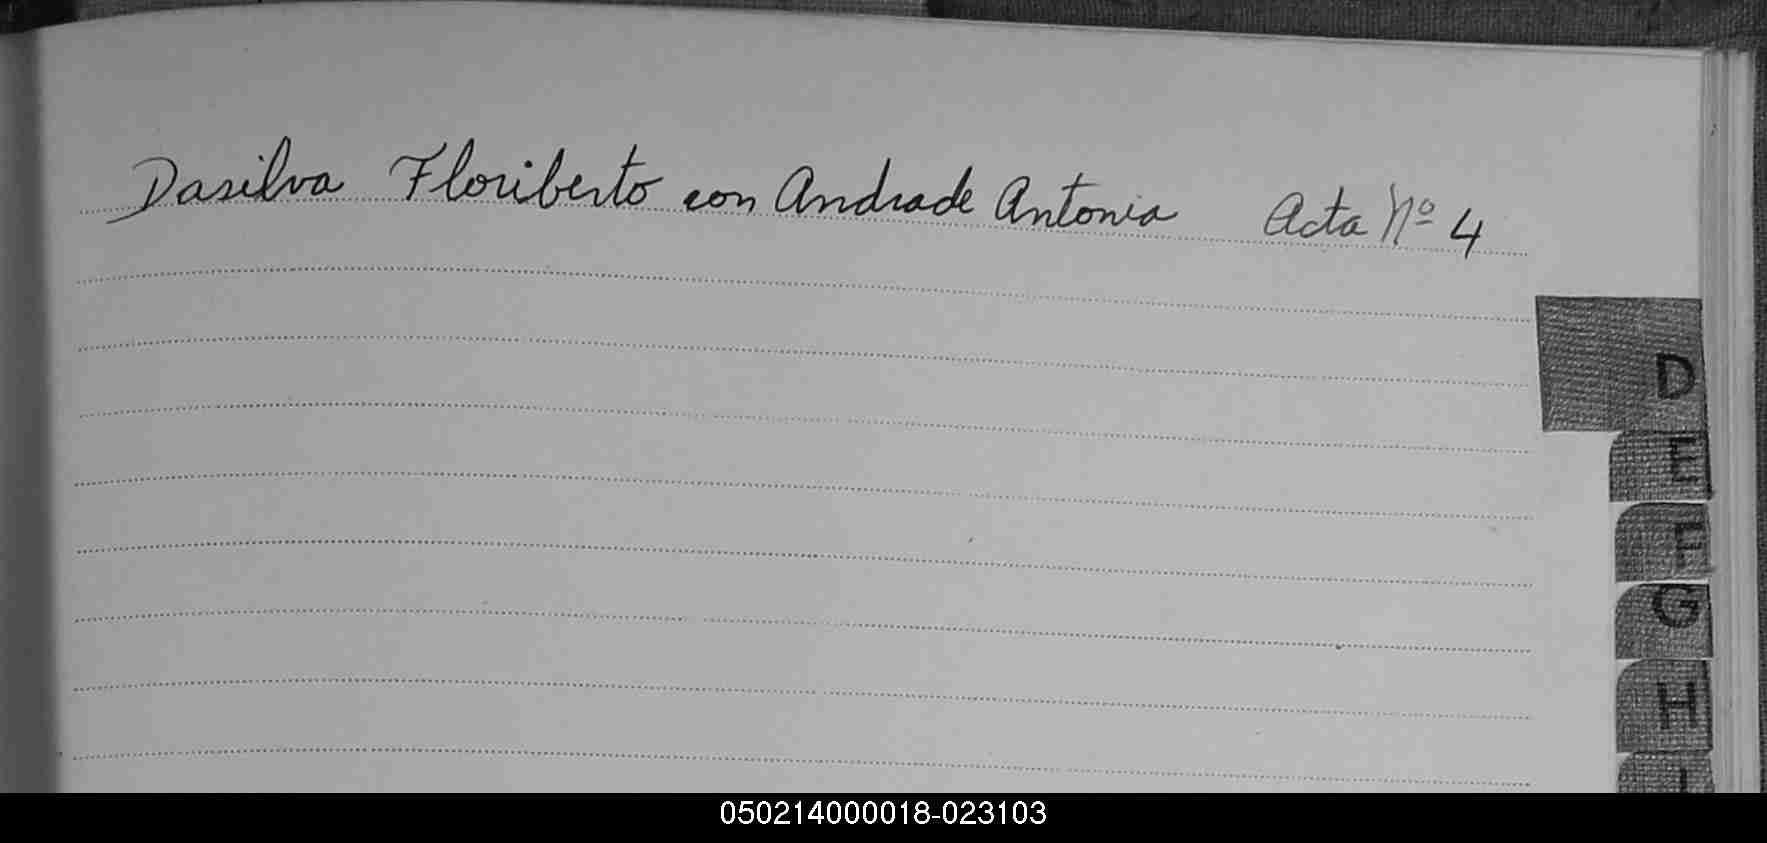 Dasilva Floriberto con Andrade Antonia Acta Nº 4
D
E
F
G
H
I
050214000018-023103